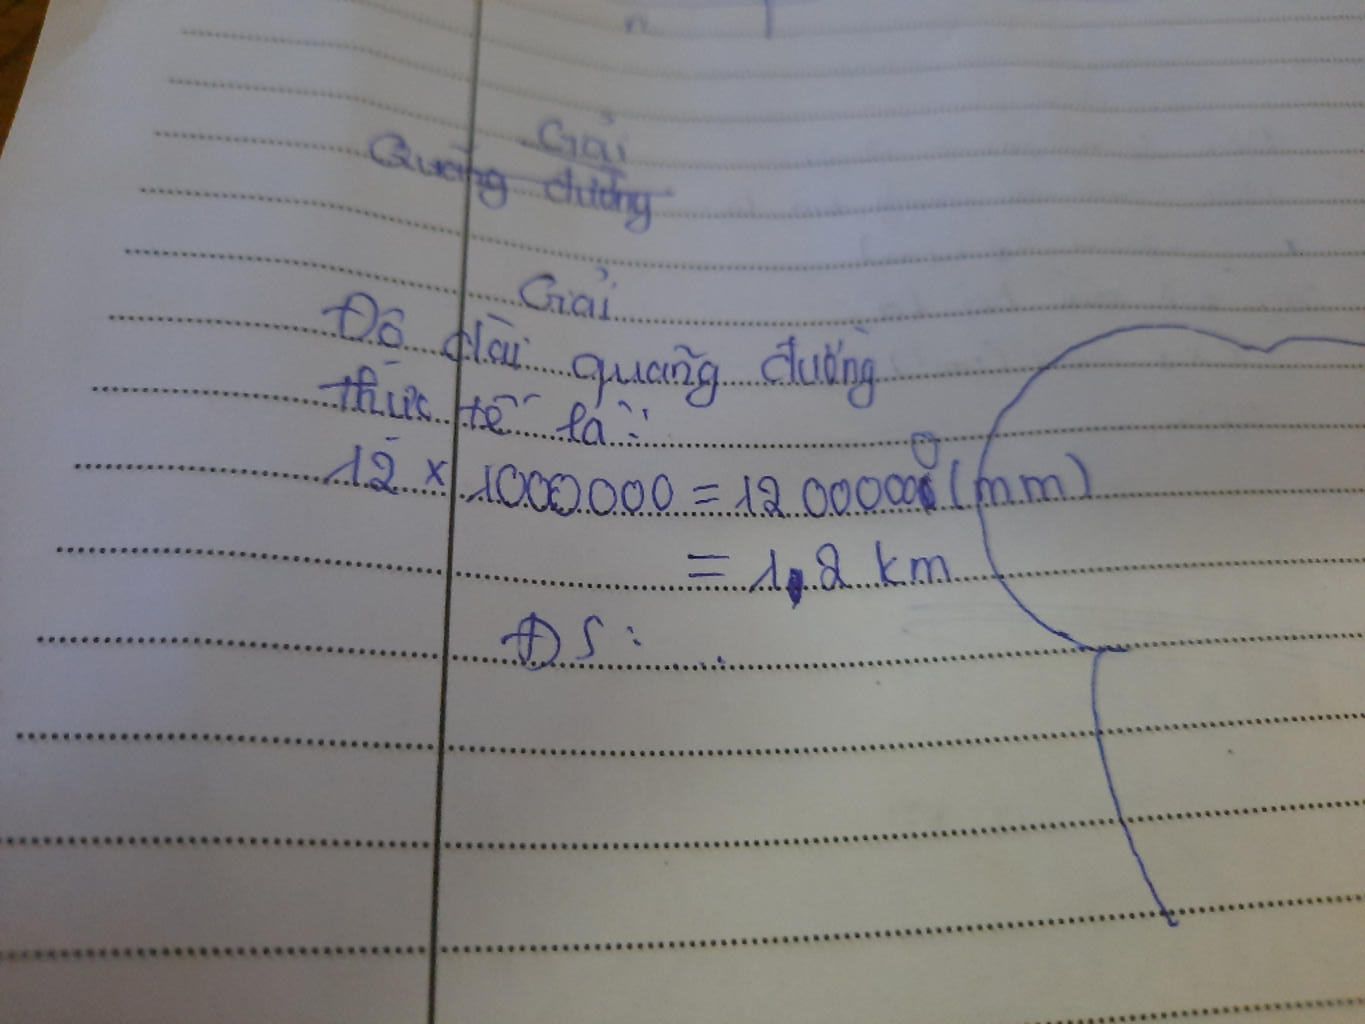 Giải
Quãng đường
Giải
Độ dài quãng đường
thực tế là:
12 x 1000000 = 12000000 (mm)
= 1,2 km
ĐS: ...